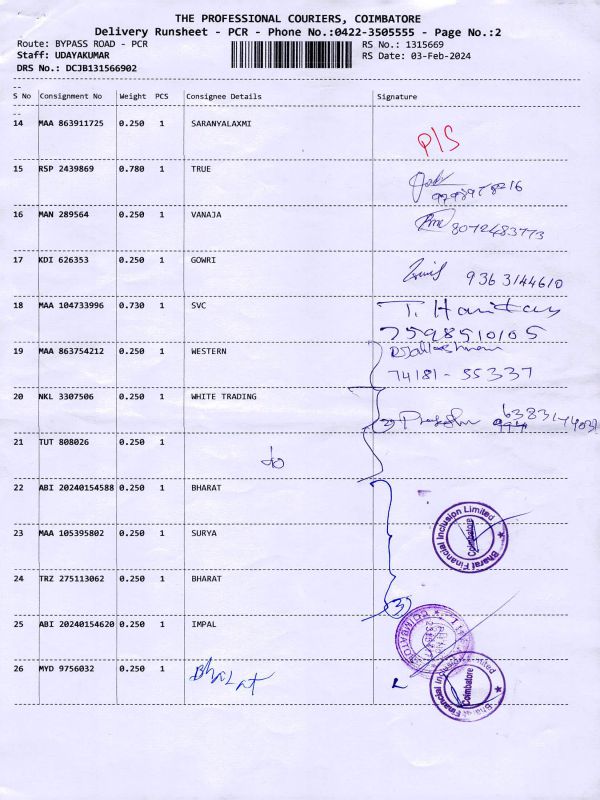 THE PROFESSIONAL COURIERS, COIMBATORE
Delivery Runsheet - PCR - Phone No.:0422-3505555 - Page No.:2
Route: BYPASS ROAD - PCR RS No.: 1315669
Staff: UDAYAKUMAR RS Date: 03-Feb-2024
DRS No.: DCJB131566902
S No Consignment No Weight PCS Consignee Details Signature
14 MAA 863911725 0.250 1 SARANYALAXMI P/S
15 RSP 2439869 0.780 1 TRUE
16 MAN 289564 0.250 1 VANAJA 8072483773
17 KDI 626353 0.250 1 GOWRI 9363144610
18 MAA 104733996 0.730 1 SVC T.
7598510105
19 MAA 863754212 0.250 1 WESTERN
74181-55337
20 NKL 3307506 0.250 1 WHITE TRADING
21 TUT 808026 0.250 1 do
22 ABI 20240154588 0.250 1 BHARAT
23 MAA 105395802 0.250 1 SURYA Bharat Financial Inclusion Limited Coimbatore
24 TRZ 275113062 0.250 1 BHARAT
3
25 ABI 20240154620 0.250 1 IMPAL
26 MYD 9756032 0.250 1 Bharat Bharat Financial Inclusion Limited Coimbatore